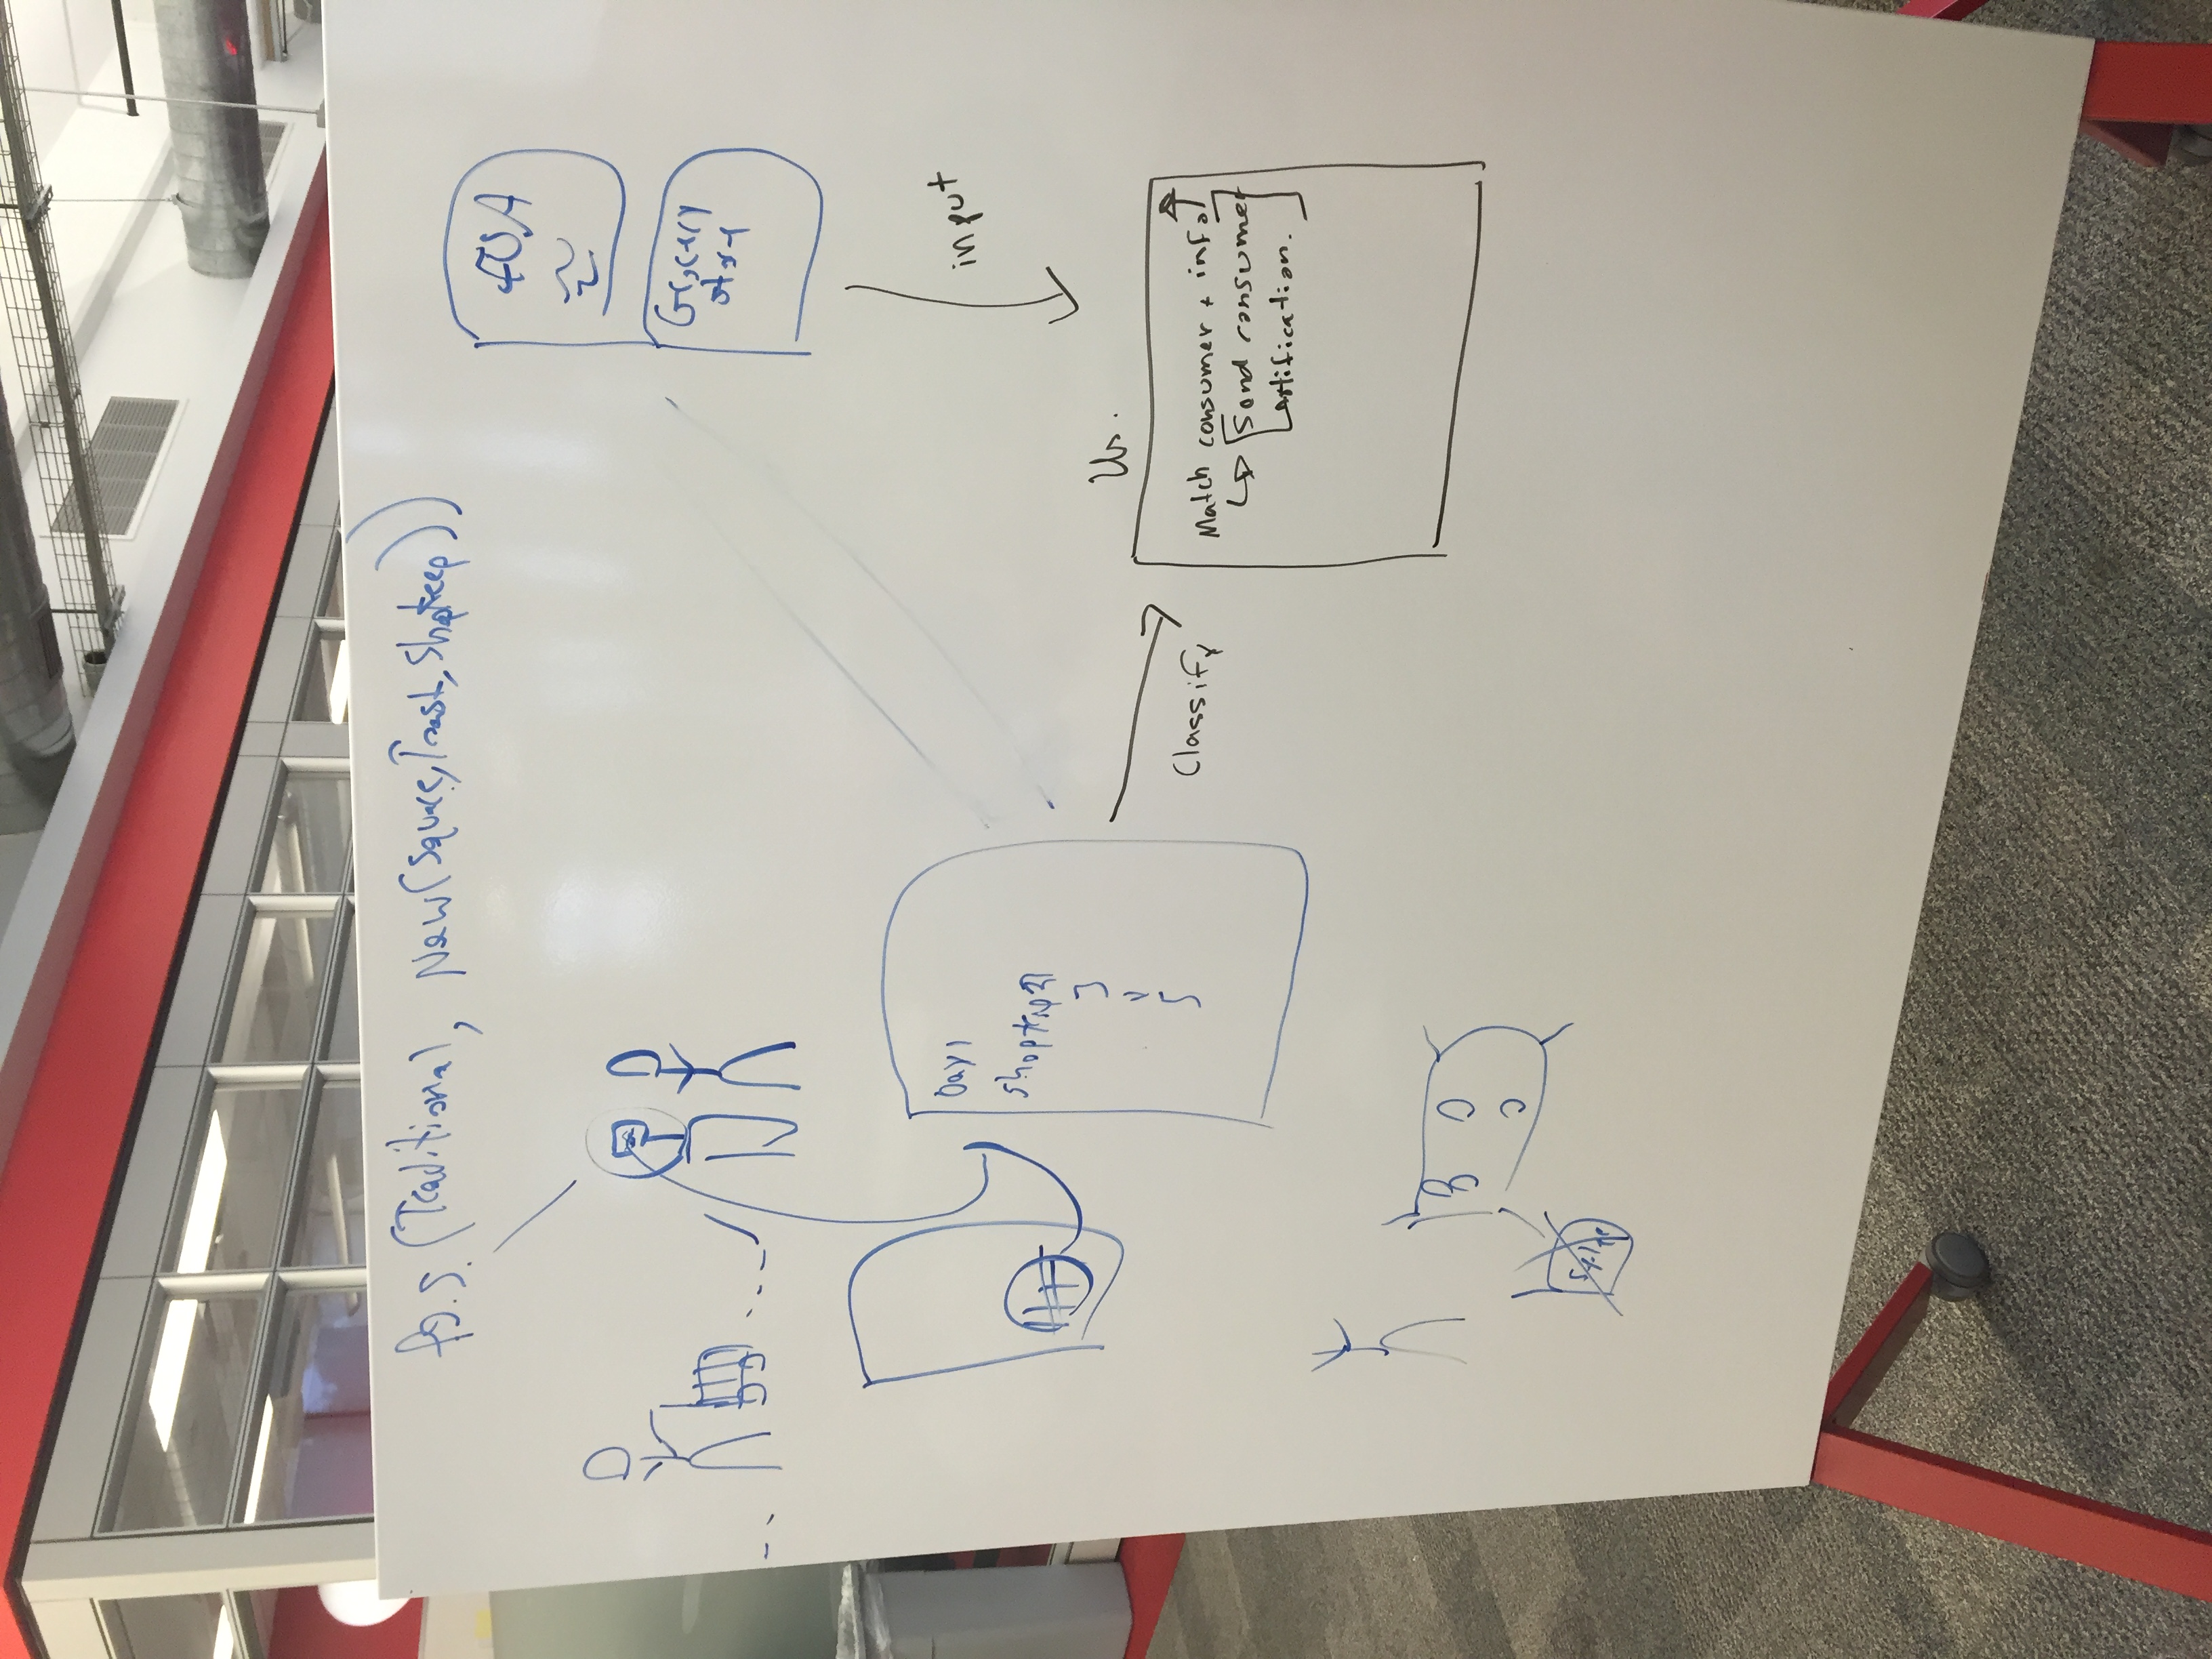 P.O.S. (Traditional, New (Square, Toast, Shopkeep))
FDA
Grocery
store
input
Day 1
Shop trip 2
3
4
5
Classify
Us.
Match consumer + info
Send consumer
notification.
B